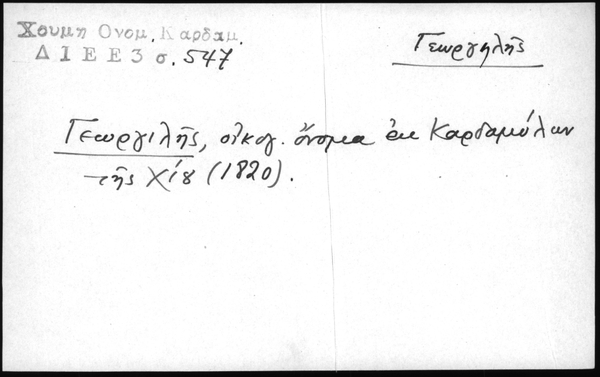 Χουμη Ονομ. Καρδαμ.
Δ Ι Ε Ε 3 σ. 547
Γεωργηλῆς
Γεωργιλῆς, οἰκογ. ὄνομα ἐκ Καρδαμύλων
τῆς Χίου (1820).